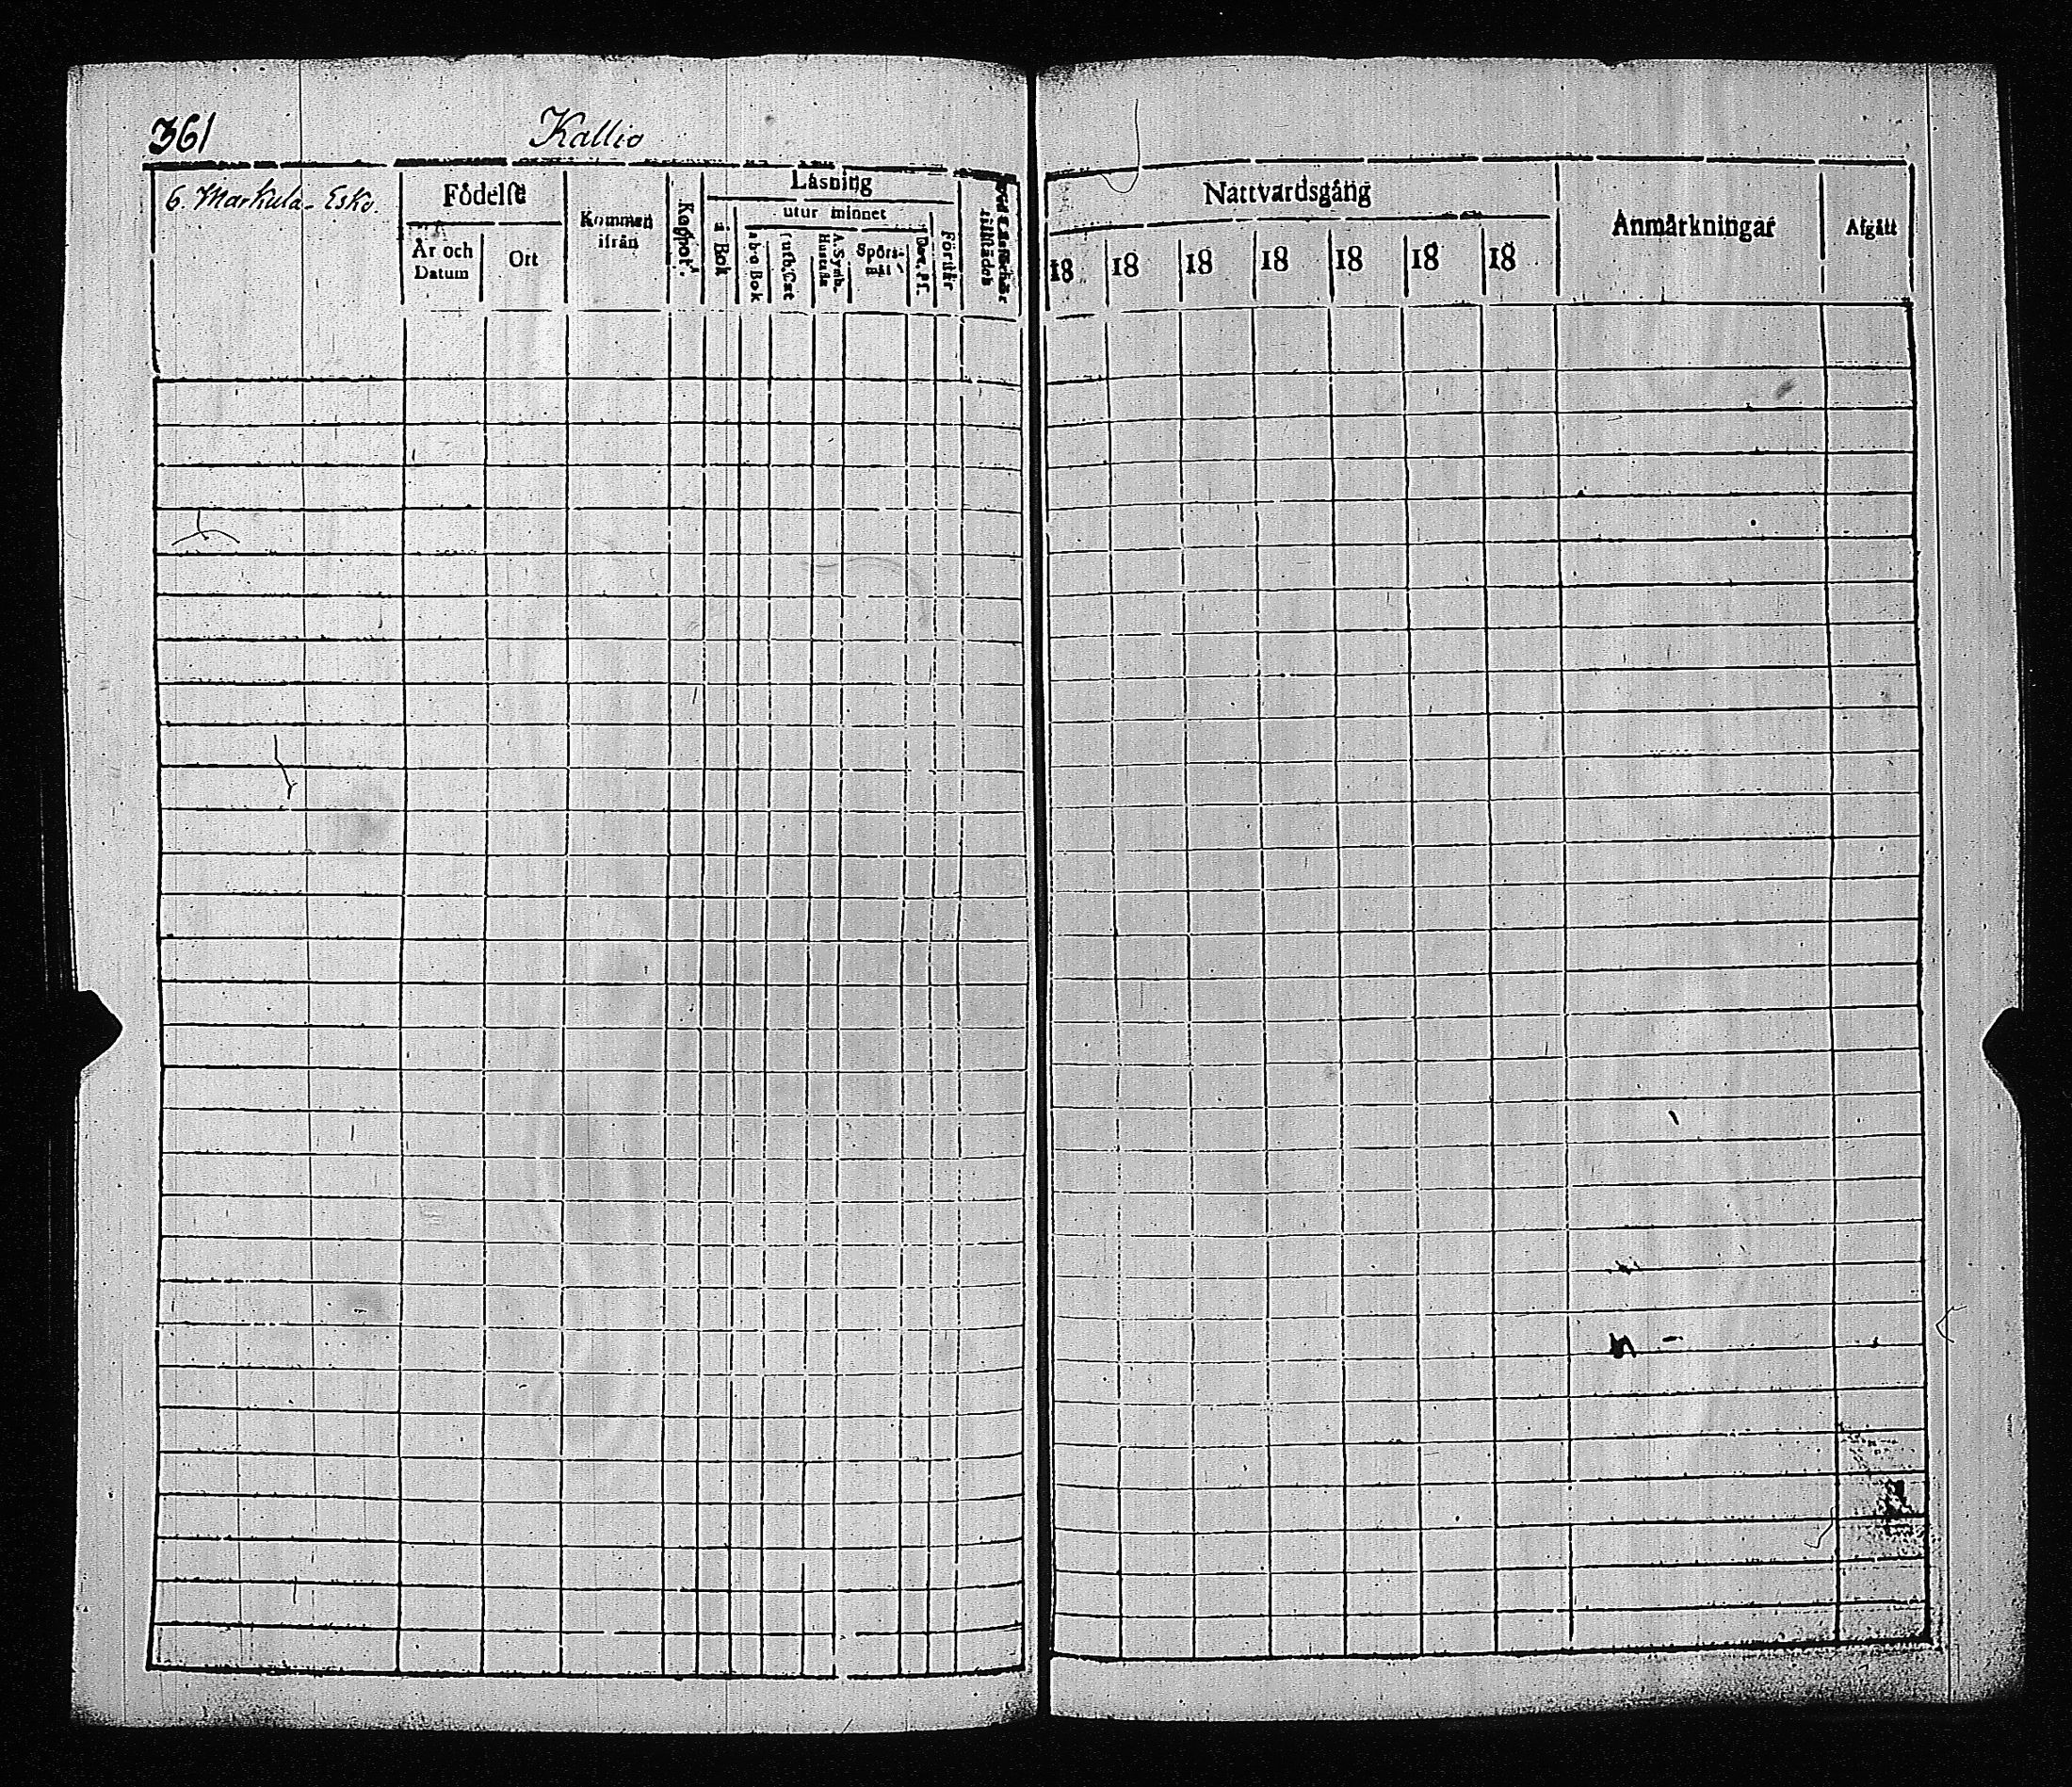 361 Kallio
6. Markula- Esko.
Födelse
År och Datum
Ort
Kommen ifrån
Koppor.
Läsning
i Bok
utur minnet
a b c Bok
Luth. Cat
A. Symb. Hustafla
Spörs-mål
Dav. Ps.
Förstår
Nattvardsgång
18 18 18 18 18 18 18
Anmärkningar
Afgått